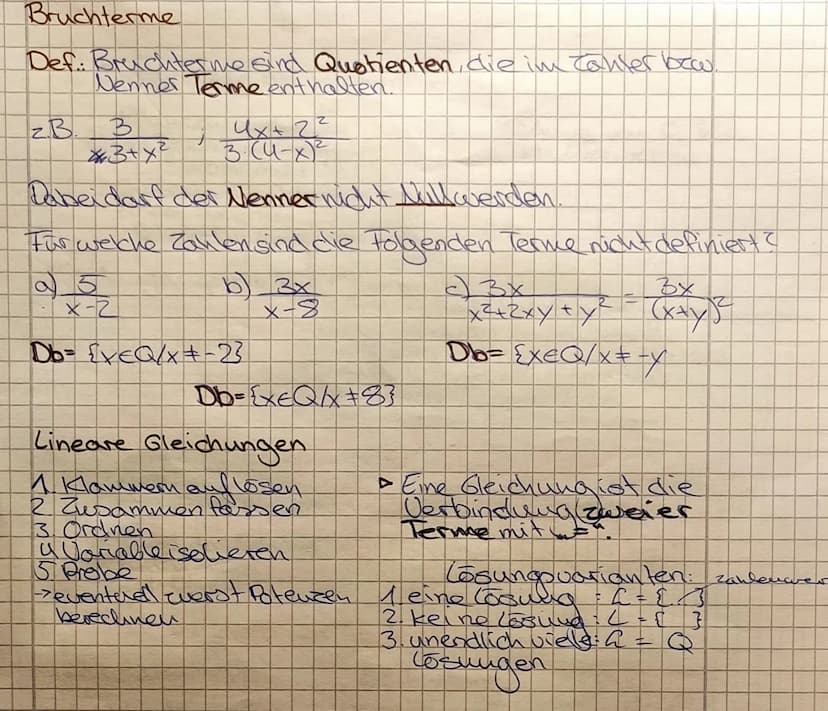 Bruchterme
Def.: Bruchterme sind Quotienten, die im Zähler bzw.
Nenner Terme enthalten.
z.B. 3/(3+x²) ; (4x+2²)/(3·(4-x)²)
Dabei darf der Nenner nicht Null werden.
Für welche Zahlen sind die folgenden Terme nicht definiert?
a) 5/(x-2) b) 3x/(x-8) c) 3x/(x²+2xy+y²) = 3x/(x+y)²
Db= {x∈Q/x≠-2} Db= {x∈Q/x≠-y
Db={x∈Q/x≠8}
Lineare Gleichungen
1. Klammern auflösen
2. Zusammenfassen
3. Ordnen
4. Variable isolieren
5. Probe
→ eventuell zuerst Potenzen
berechnen
▷ Eine Gleichung ist die
Verbindung zweier
Terme mit „=“.
Lösungsvarianten:
1. eine Lösung : L = { }
2. keine Lösung : L = { }
3. unendlich viele : L = Q
Lösungen